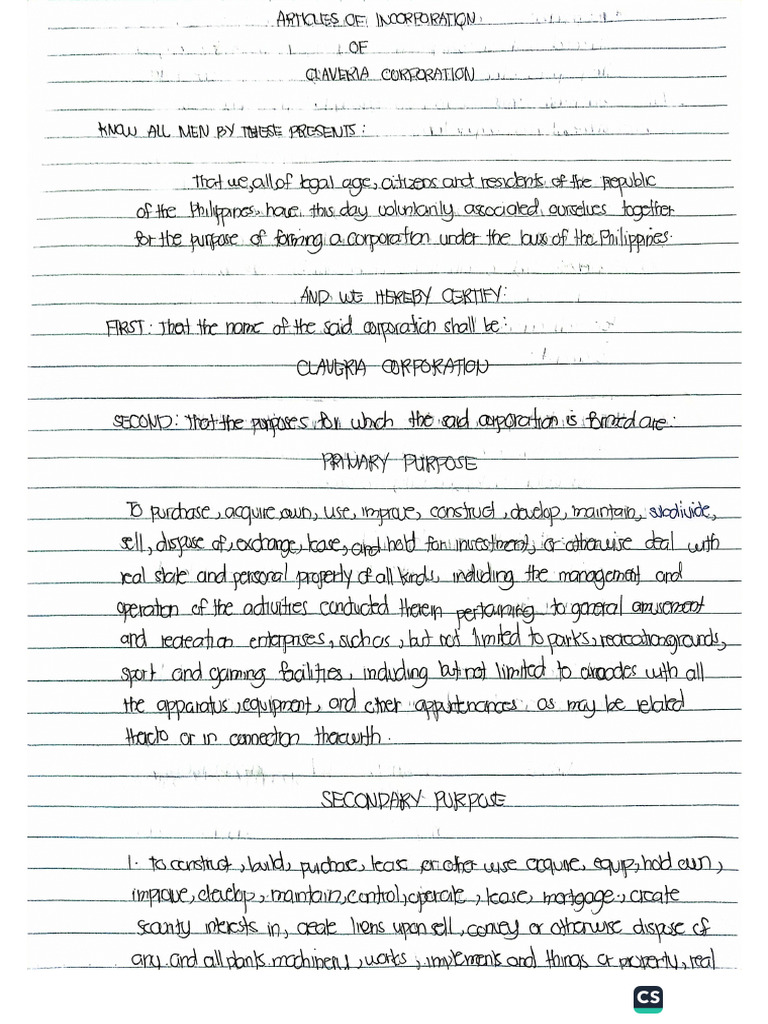 ARTICLES OF INCORPORATION
OF
CLAVERIA CORPORATION
KNOW ALL MEN BY THESE PRESENTS:
That we, all of legal age, citizens and residents of the Republic
of the Philippines, have this day voluntarily associated ourselves together
for the purpose of forming a corporation under the laws of the Philippines.
AND WE HEREBY CERTIFY:
FIRST: That the name of the said corporation shall be:
CLAVERIA CORPORATION
SECOND: That the purposes for which the said corporation is formed are:
PRIMARY PURPOSE
To purchase, acquire, own, use, improve, construct, develop, maintain, subdivide,
sell, dispose of, exchange, lease, and hold for investment, or otherwise deal with
real state and personal property of all kinds, including the management and
operation of the activities conducted therein pertaining to general amusement
and recreation enterprises, such as, but not limited to parks, recreation grounds,
sport and gaming facilities, including but not limited to arcades with all
the apparatus, equipment, and other appurtenances as may be related
thereto or in connection therewith.
SECONDARY PURPOSE
1. To construct, build, purchase, lease or other wise acquire, equip, hold own,
improve, develop, maintain, control, operate, lease, mortgage, create
security interests in, create liens upon sell, convey or otherwise dispose of
any and all plants machinery, works, implements and things or property, real
CS